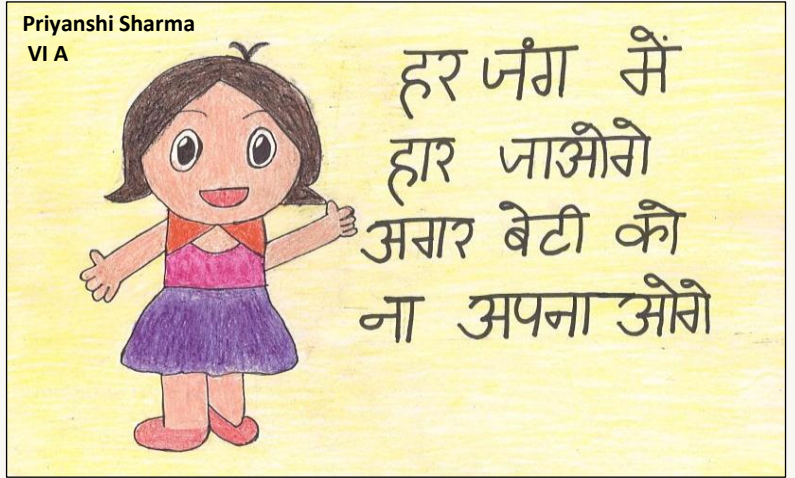 Priyanshi Sharma
VI A
हर जंग में
हार जाओगे
अगर बेटी को
ना अपनाओगे